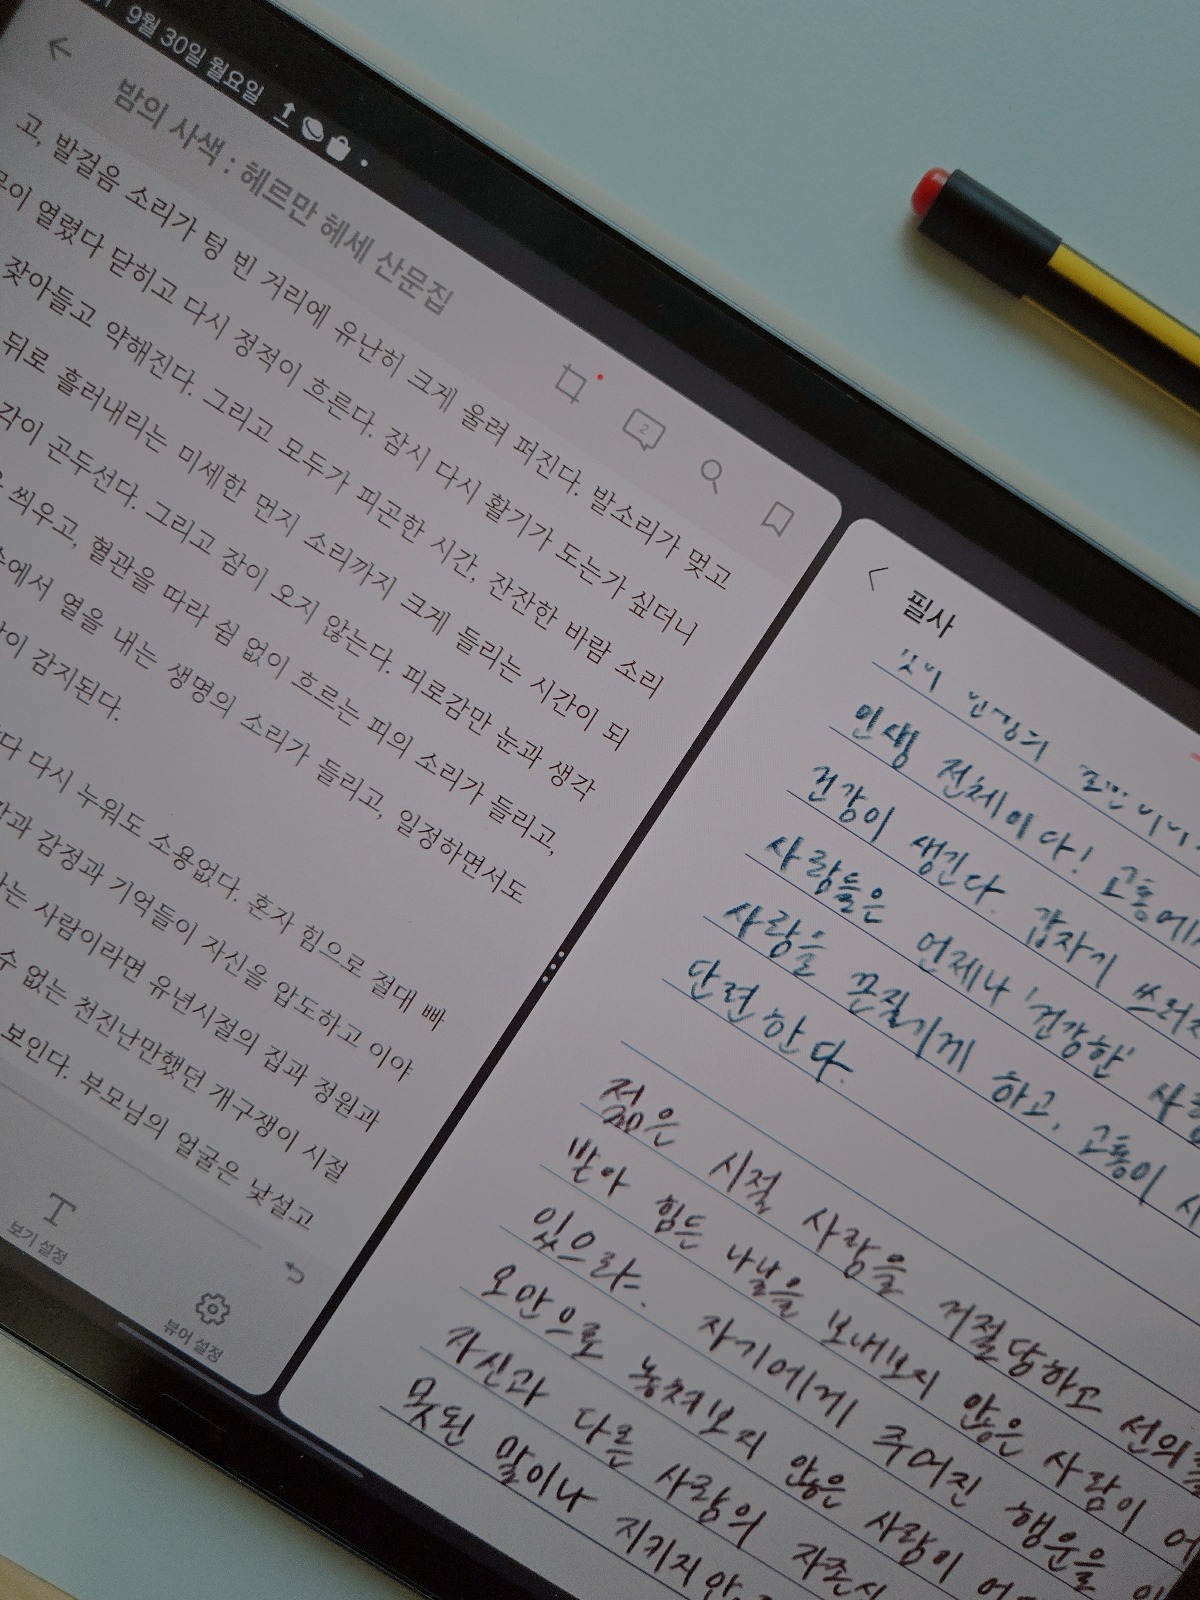 9월 30일 월요일
밤의 사색 : 헤르만 헤세 산문집
고, 발걸음 소리가 텅 빈 거리에 유난히 크게 울려 퍼진다. 발소리가 멎고
열렸다 닫히고 다시 정적이 흐른다. 잠시 다시 활기가 도는가 싶더니
잦아들고 약해진다. 그리고 모두가 피곤한 시간, 잔잔한 바람 소리
뒤로 흘러내리는 미세한 먼지 소리까지 크게 들리는 시간이 되
곤두선다. 그리고 잠이 오지 않는다. 피로감만 눈과 생각
씌우고, 혈관을 따라 쉼 없이 흐르는 피의 소리가 들리고,
열을 내는 생명의 소리가 들리고, 일정하면서도
감지된다.
다시 누워도 소용없다. 혼자 힘으로 절대 빠
감정과 기억들이 자신을 압도하고 이야
사람이라면 유년시절의 집과 정원과
수 없는 천진난만했던 개구쟁이 시절
보인다. 부모님의 얼굴은 낯설고
보기 설정
뷰어 설정
필사
인생 전체이다! 고통에서
건강이 생긴다. 갑자기
사람들은 언제나 '건강한'
사람을 끈질기게 하고, 고통이
단련한다.
젊은 시절 사랑을 거절당하고 선의를
받아 힘든 나날을 보내보지 않은 사람이
있으랴. 자기에게 주어진 행운을
오만으로 놓쳐보지 않은 사람이
자신과 다른 사람의
못된 말이나